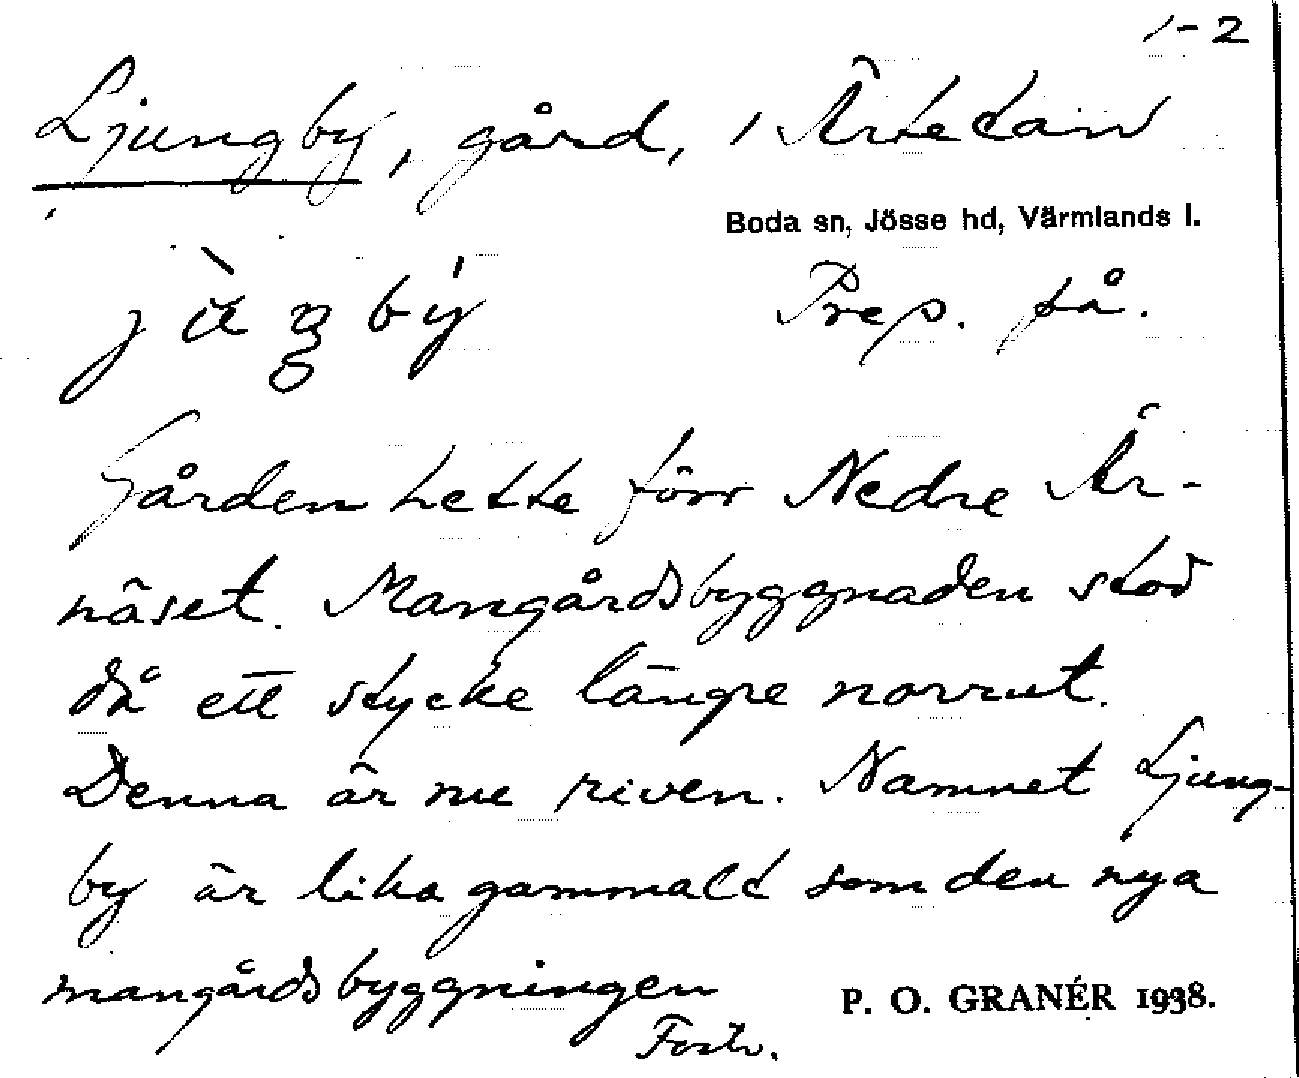 1-2
Ljungby, gård, i Ärtetan
Boda sn, Jösse hd, Värmlands l.
Prep. på.
Gården hette förr Nedre Är-
näset. Mangårdsbyggnaden stod
då ett stycke längre norrut.
Denna är nu riven. Namnet Ljung-
by är lika gammalt som den nya
mangårdsbyggningen
P. O. GRANÉR 1938.